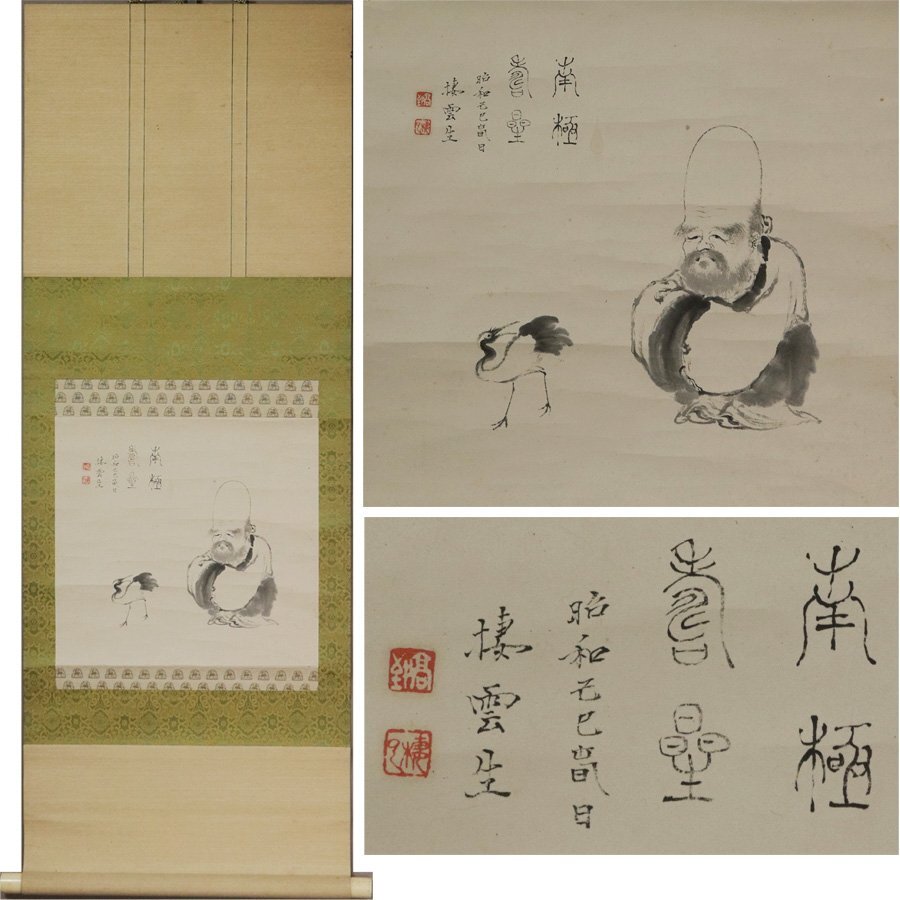 南極
壽星
昭和己巳 日
棲雲生
南極
壽星
昭和己巳 日
棲雲生
南極
壽星
昭和己巳 日
棲雲生